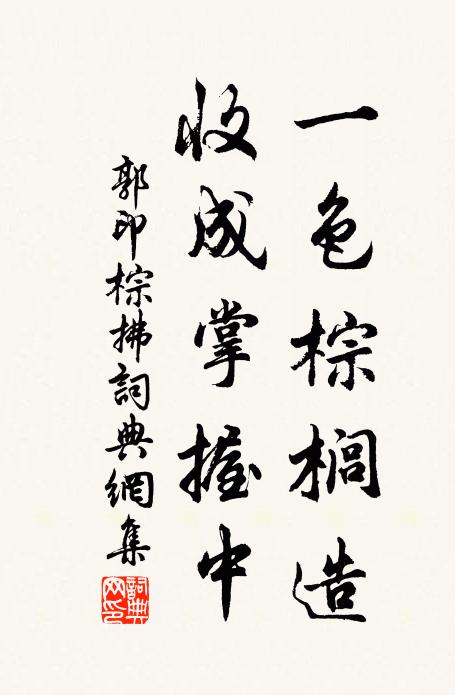 一色棕榈造
收成掌握中
郭印棕拂詞典網集
詞典网印